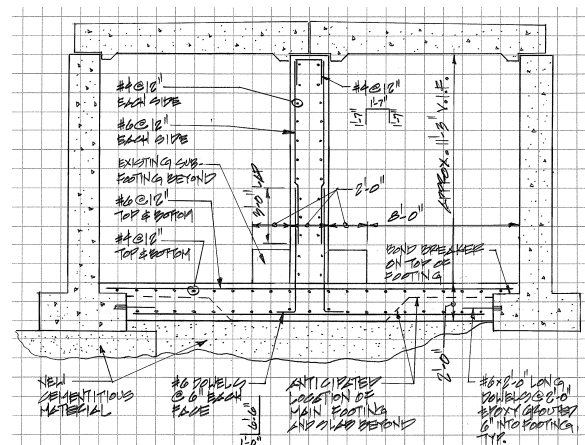 #4@12"
EACH SIDE
#6@12"
EACH SIDE
EXISTING SUB-
FOOTING BEYOND
#6@12"
TOP & BOTTOM
#4@12"
TOP & BOTTOM
#4@12"
1'-7"
1'-7"
1'-7"
APPROX. 11'-3" V.I.F.
3'-0" LAP
2'-0"
8'-0"
BOND BREAKER
ON TOP OF
FOOTING
2'-0"
NEW
CEMENTITIOUS
MATERIAL
#6 DOWELS
@ 6" EACH
FACE
ANTICIPATED
LOCATION OF
MAIN FOOTING
AND SLAB BEYOND
#6x2'-0" LONG
DOWELS @ 2'-0"
EPOXY GROUTED
6" INTO FOOTING
TYP.